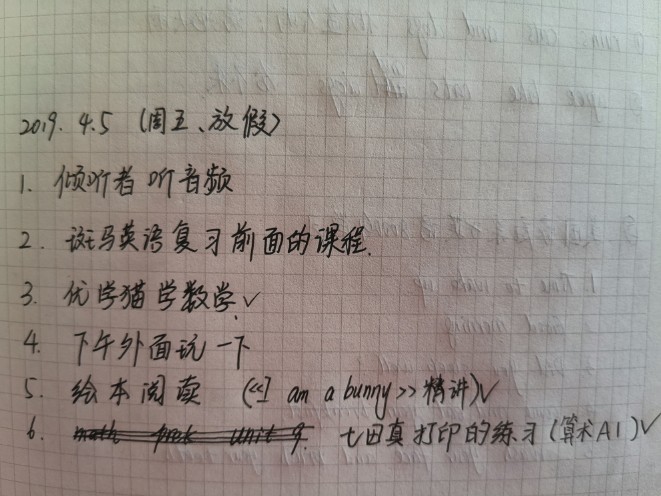 2019. 4.5 (周五、放假)
1. 倾听者 听音频
2. 斑马英语复习前面的课程.
3. 优学猫学数学.✓
4. 下午外面玩一下
5. 绘本阅读 (<<I am a bunny>>精讲)✓
6. math unit 9. 七田真打印的练习(算术A1)✓